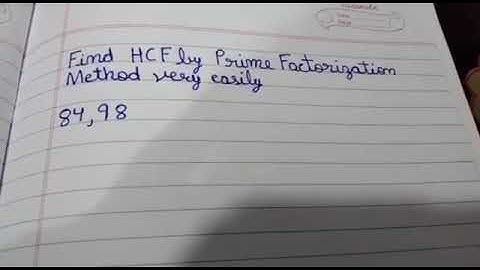 Find HCF by Prime Factorization
Method very easily
84, 98